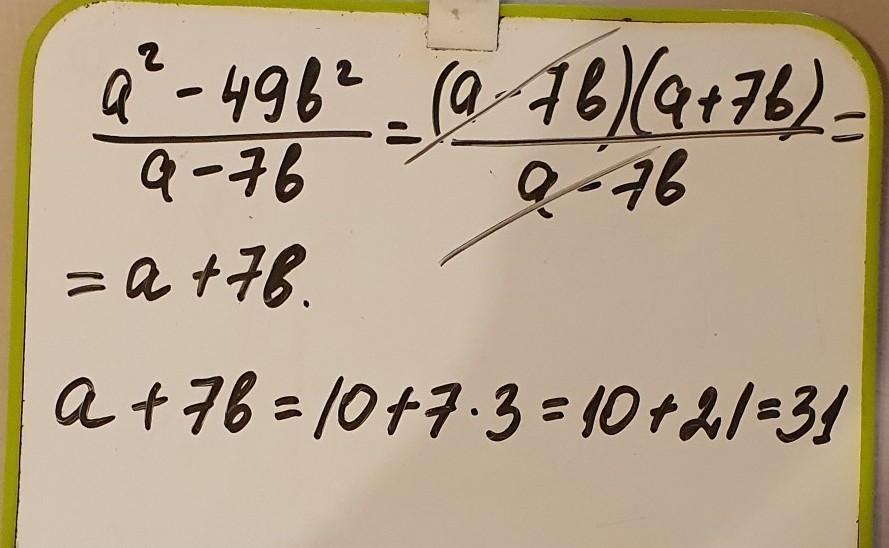 a² - 49b² / a - 7b = (a - 7b)(a + 7b) / a - 7b =
= a + 7b.
a + 7b = 10 + 7 · 3 = 10 + 21 = 31